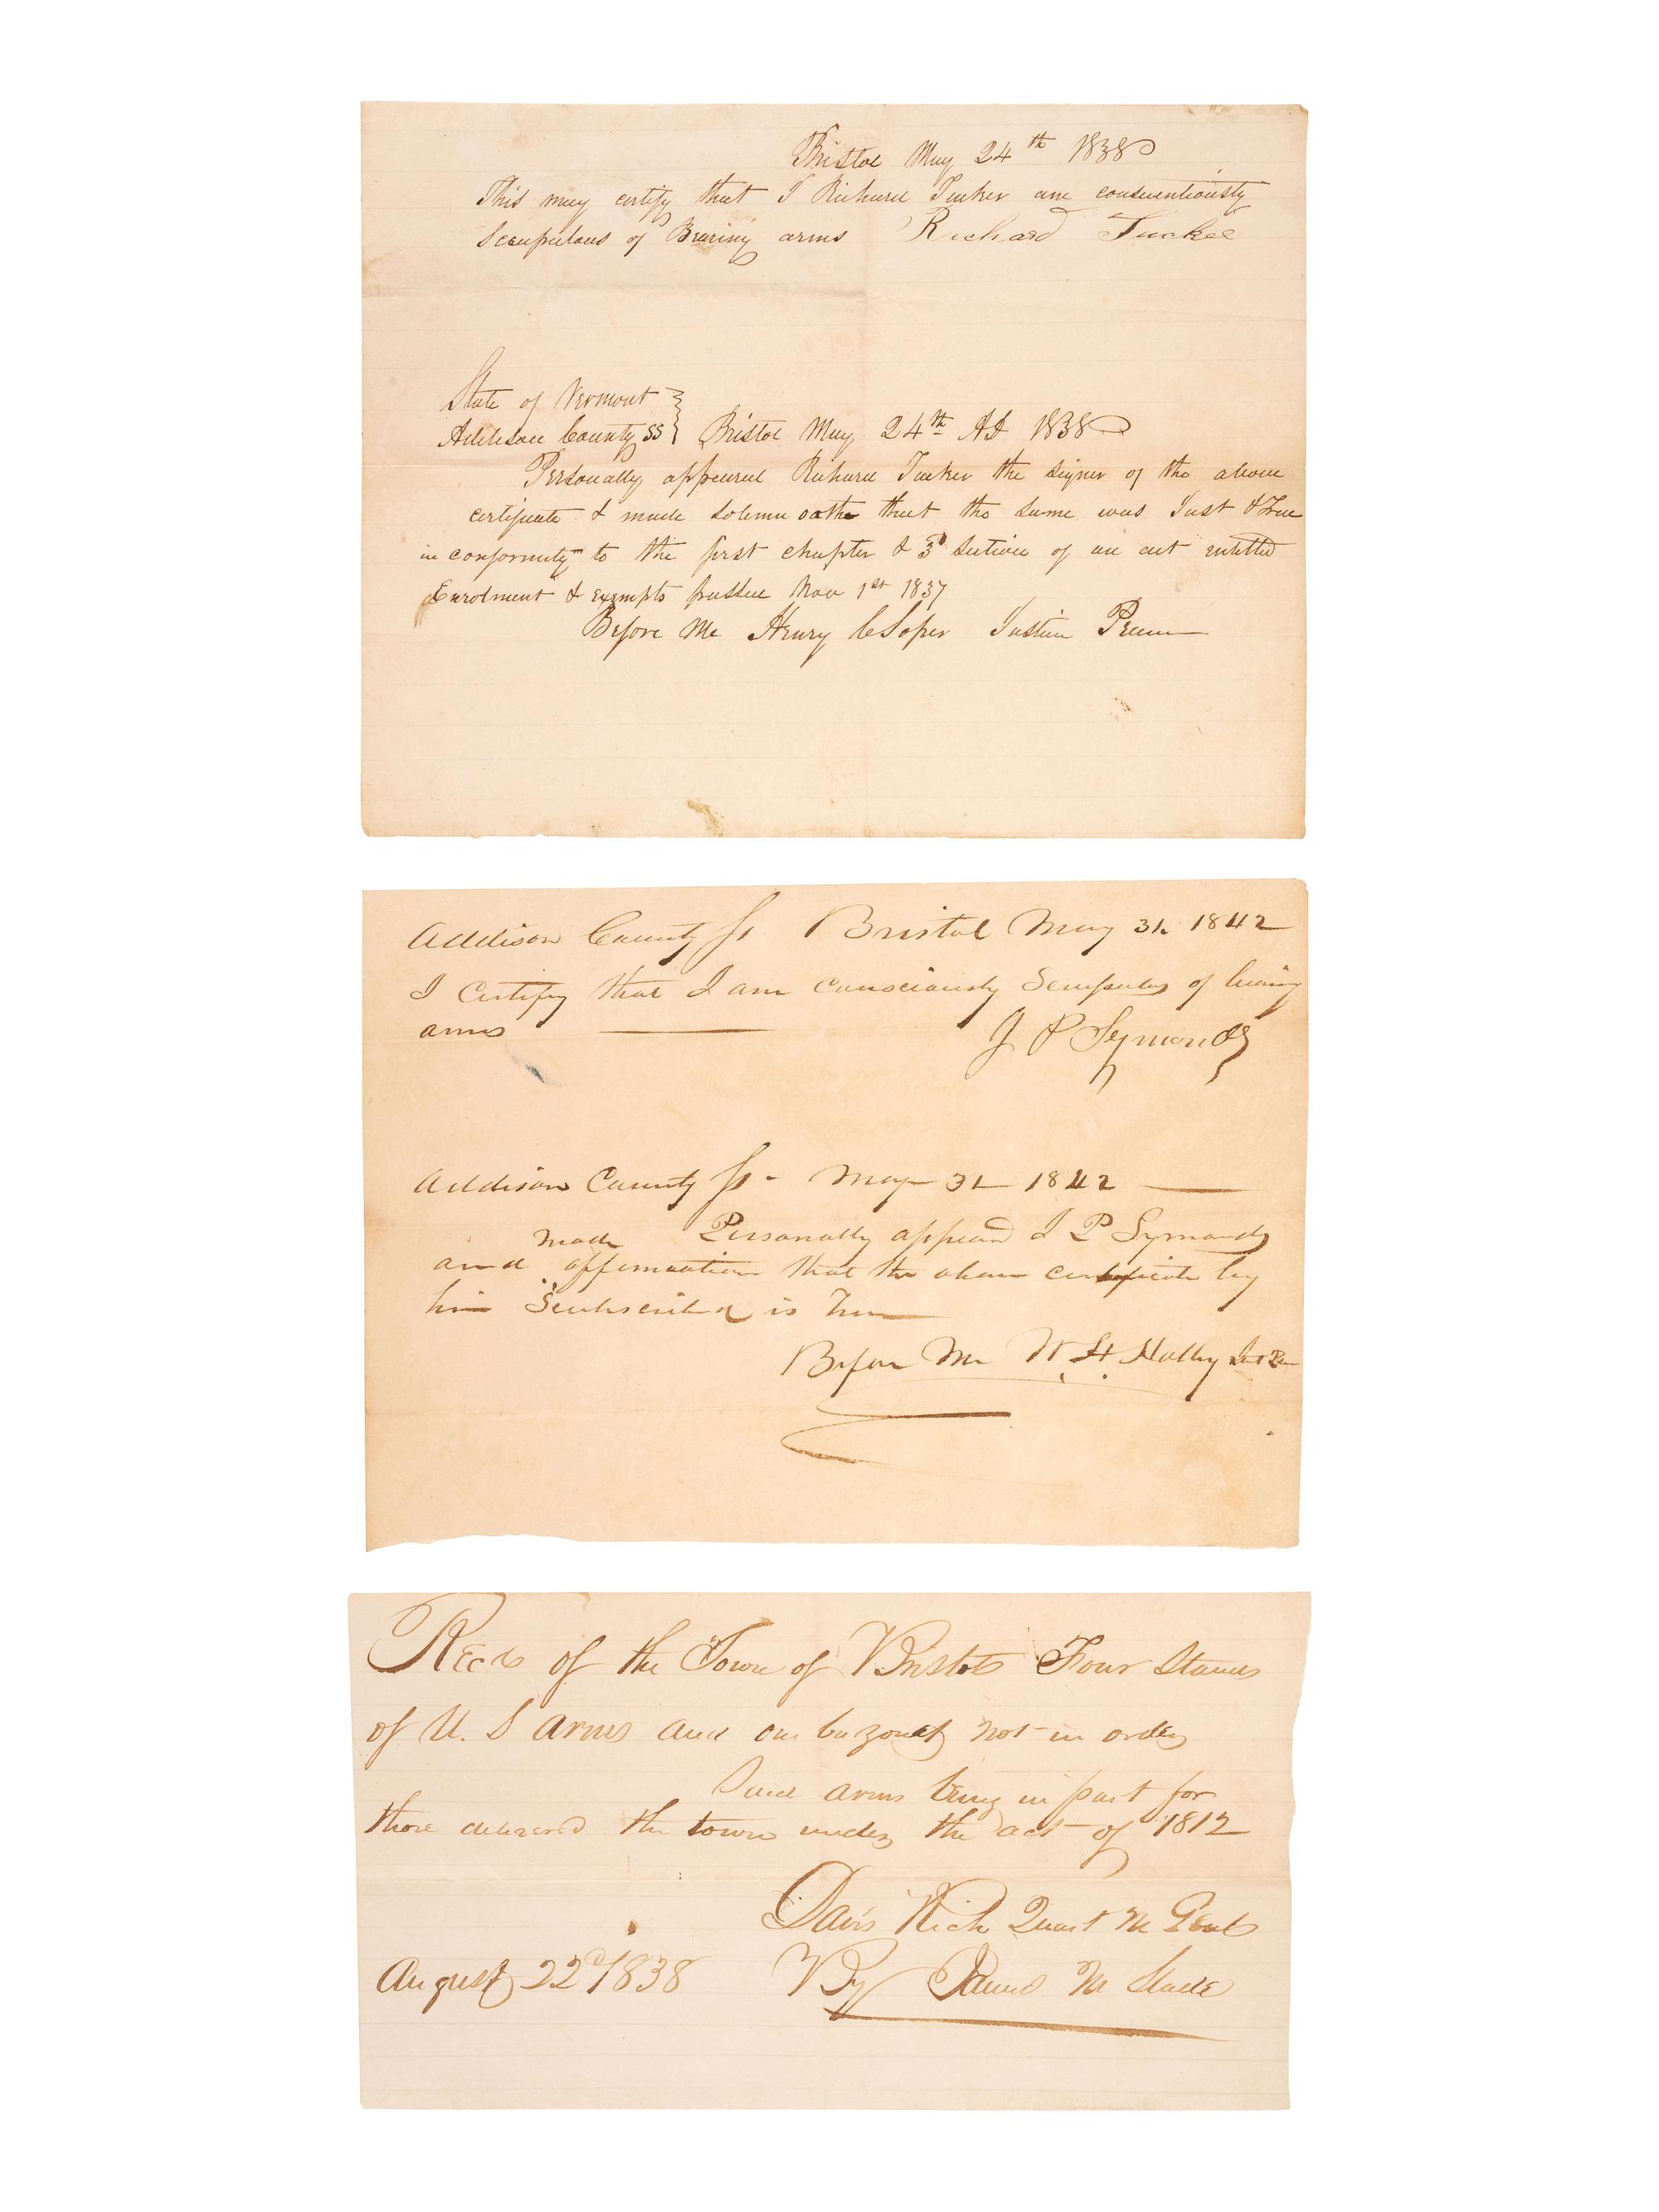 Bristol May 24th 1838
This may certify that I Richard Tucker am consientiously
Scrupulous of Bearing arms Richard Tucker
State of Vermont
Addison County ss Bristol May 24th AD 1838
Personally appeared Richard Tucker the signer of the above
certificate & made solemn oathe that the same was Just & True
in conformity to the first chapter & 3d section of an act entitled
Enrolment & exempts passed Nov 1st 1837
Before Me Henry C Soper Justice Peace
Addison County ss Bristol May 31. 1842
I Certify that I am consciously Scrupulos of bearing
arms
J P Symonds
Addison County ss - May 31 1842
made Personally appeard J P Symonds
and affirmation that the above certificate by
him Subscribed is True
Before Me W. H. Holley Just Peace
Recd of the Town of Bristol Four Stands
of U. S arms and one bayonet not in order
Said arms being in part for
those delivered the town under the act of 1812
Davis Rich Quart M Genl
By M Slade
August 22d 1838